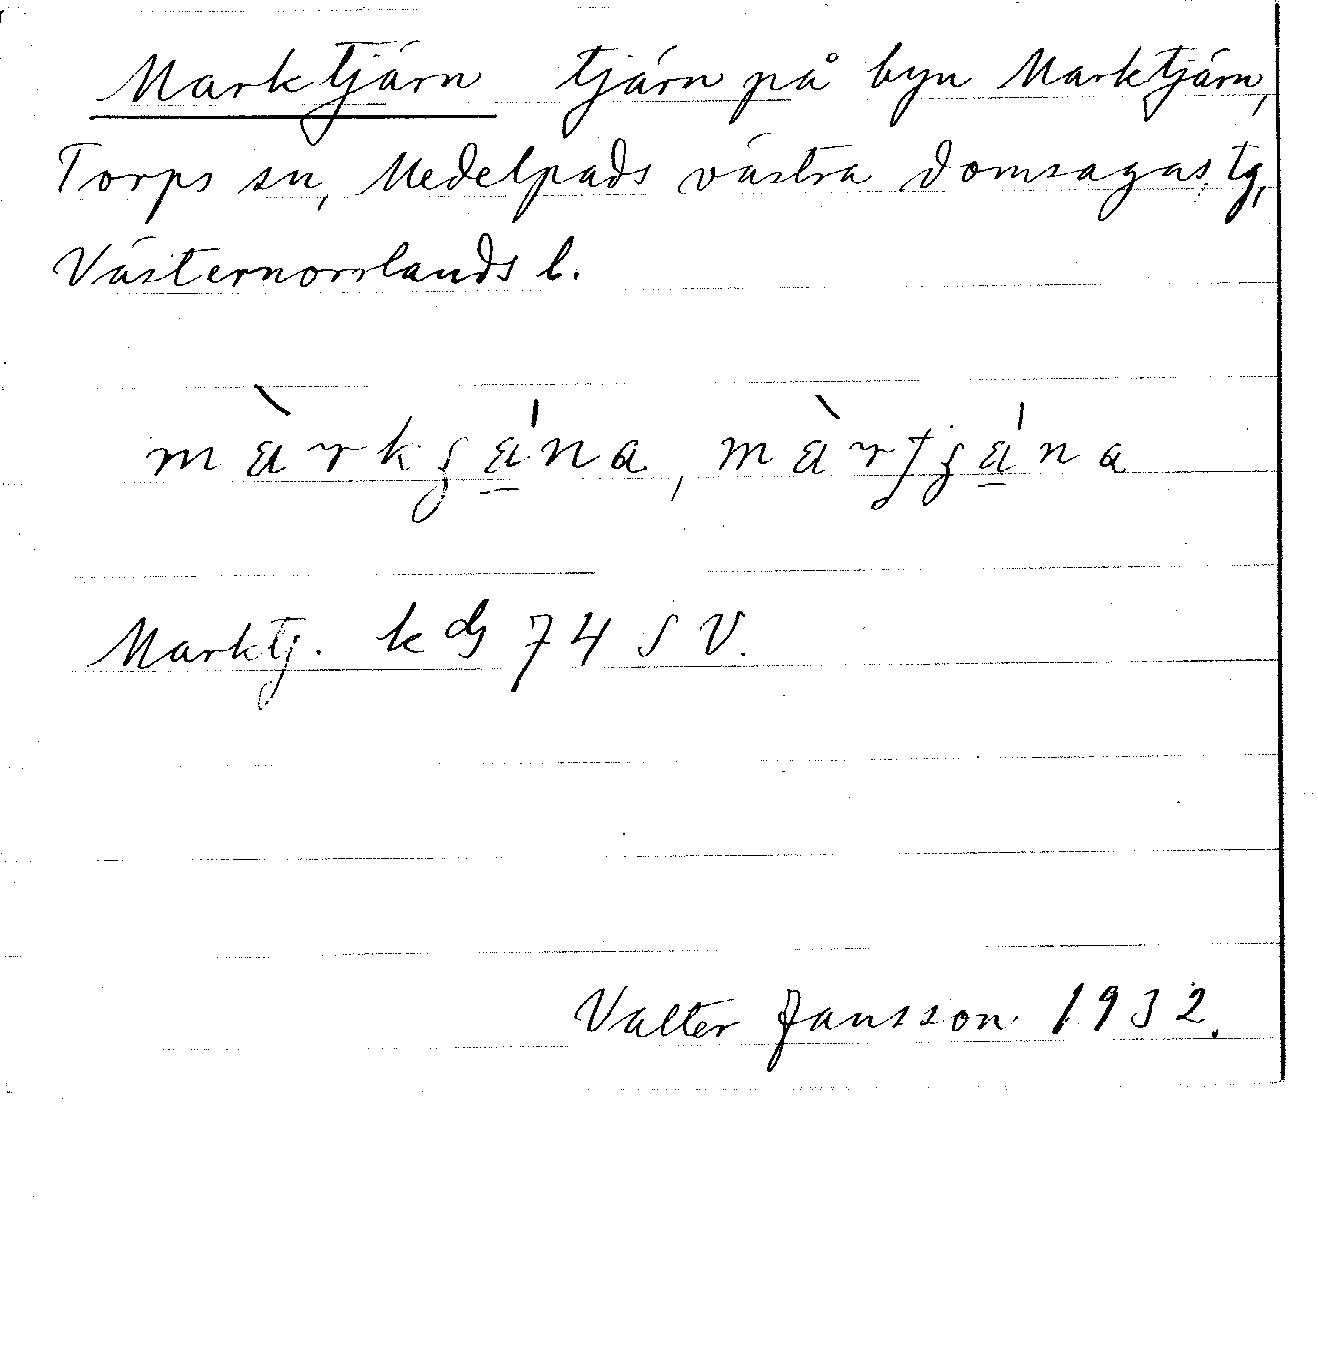 Marktjärn tjärn på byn Marktjärn,
Torps sn, Medelpads västra domsagas tg,
Västernorrlands l.
Marktj. k dg 74 S V.
Valter Jansson 1932.